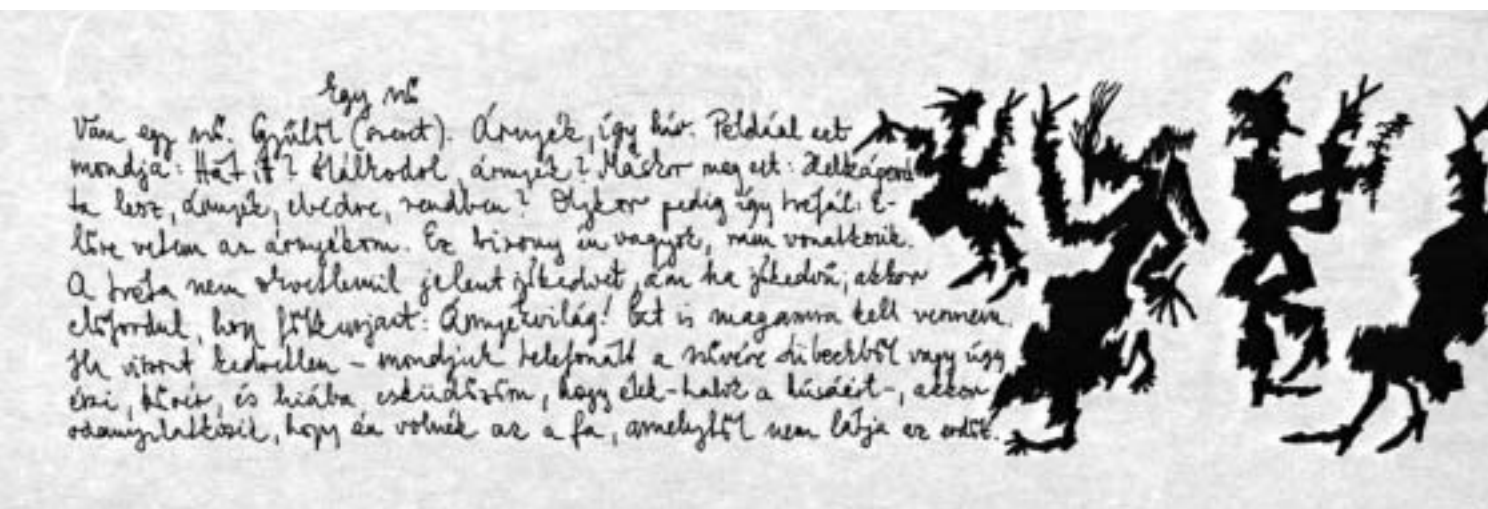 Egy nő
Van egy nő. Gyűlöl (szeret). Árnyék, így hív. Például ezt
mondja: Hát itt? Ólálkodol, árnyék? Máskor meg ezt: Zellerkáposz
ta lesz, árnyék, ebédre, rendben? Olykor pedig így tréfál: E-
lőre vetem az árnyékom. Ez bizony én vagyok, rám vonatkozik.
A tréfa nem okvetlenül jelent jókedvet, ám ha jókedvű, akkor
előfordul, hogy fölkurjant: Árnyékvilág! Ezt is magamra kell vennem.
Ha viszont kedvetlen – mondjuk telefonált a nővére Lübeckből vagy úgy
érzi, kövér, és hiába esküdözöm, hogy élek-halok a húsáért –, akkor
odanyilatkozik, hogy én volnék az a fa, amelytől nem látja az erdőt.